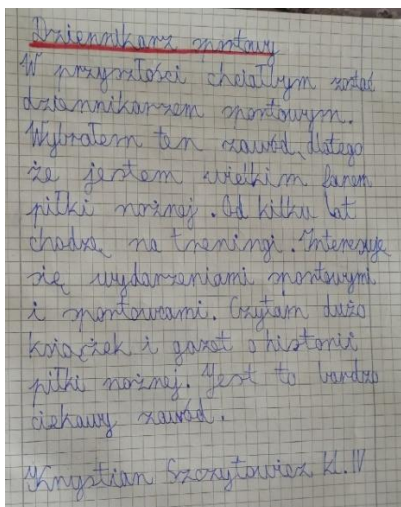 Dziennikarz sportowy
W przyszłości chciałbym zostać
dziennikarzem sportowym.
Wybrałem ten zawód, dlatego
że jestem wielkim fanem
piłki nożnej. Od kilku lat
chodzę na treningi. Interesuję
się wydarzeniami sportowymi
i sportowcami. Czytam dużo
książek i gazet o historii
piłki nożnej. Jest to bardzo
ciekawy zawód.
Krystian Szczytowicz kl. IV